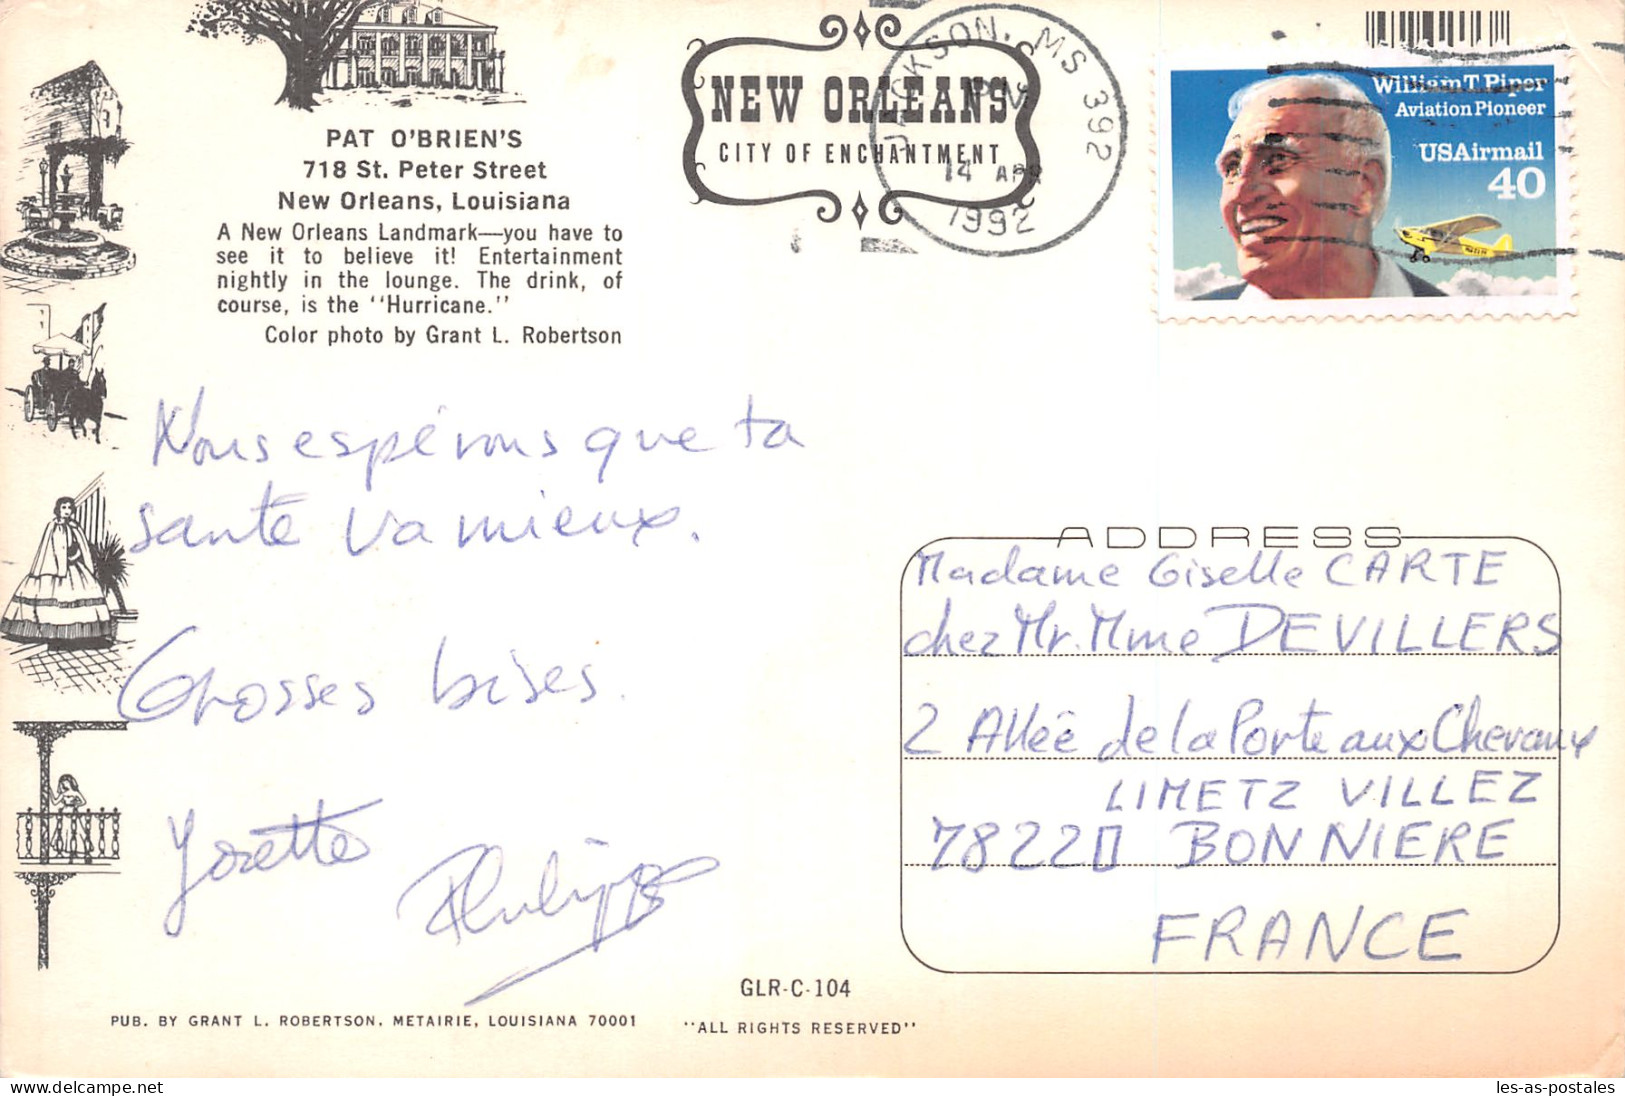 PAT O'BRIEN'S
718 St. Peter Street
New Orleans, Louisiana
A New Orleans Landmark—you have to
see it to believe it! Entertainment
nightly in the lounge. The drink, of
course, is the "Hurricane."
Color photo by Grant L. Robertson
NEW ORLEANS
CITY OF ENCHANTMENT
JACKSON, MS 392
14 APR
1992
William T. Piper
Aviation Pioneer
USAirmail
40
Nous espérons que ta
santé va mieux.
Grosses bises.
Yvette
Philippe
ADDRESS
Madame Giselle CARTE
chez Mr. Mme DEVILLERS
2 Allée de la Porte aux Chevaux
LIMETZ VILLEZ
78220 BONNIERE
FRANCE
GLR-C-104
PUB. BY GRANT L. ROBERTSON, METAIRIE, LOUISIANA 70001
"ALL RIGHTS RESERVED"
les-as-postales